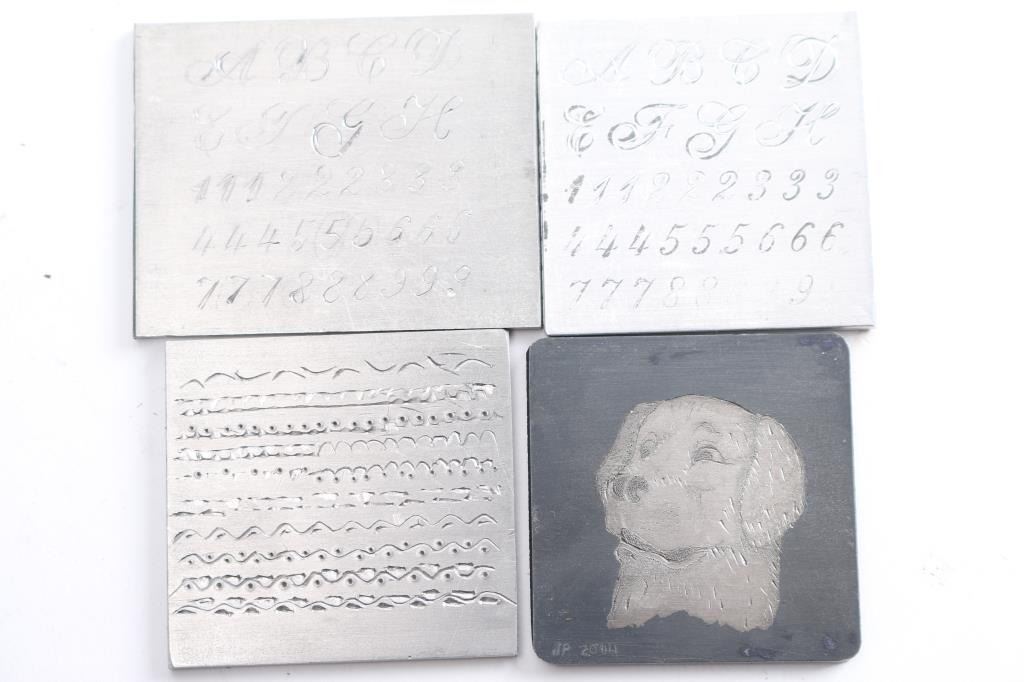 A B C D
E F G H
1 1 1 2 2 2 3 3 3
4 4 4 5 5 5 6 6 6
7 7 7 8 8 8 9 9 9
A B C D
E F G H
1 1 1 2 2 2 3 3 3
4 4 4 5 5 5 6 6 6
7 7 7 8 8 9